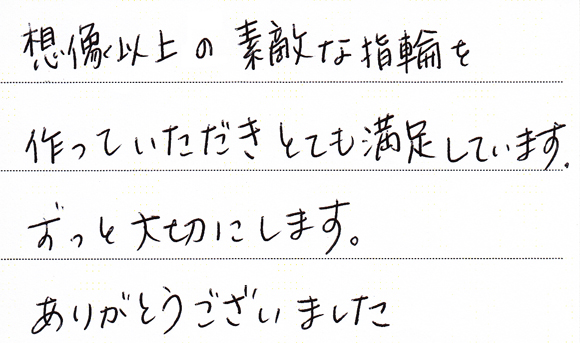 想像以上の素敵な指輪を
作っていただきとても満足しています.
ずっと大切にします。
ありがとうございました